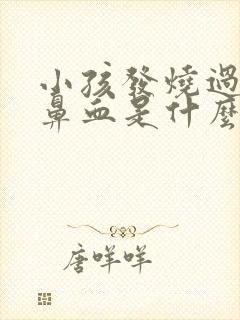 小孩發燒過
鼻血是什麼
唐咩咩